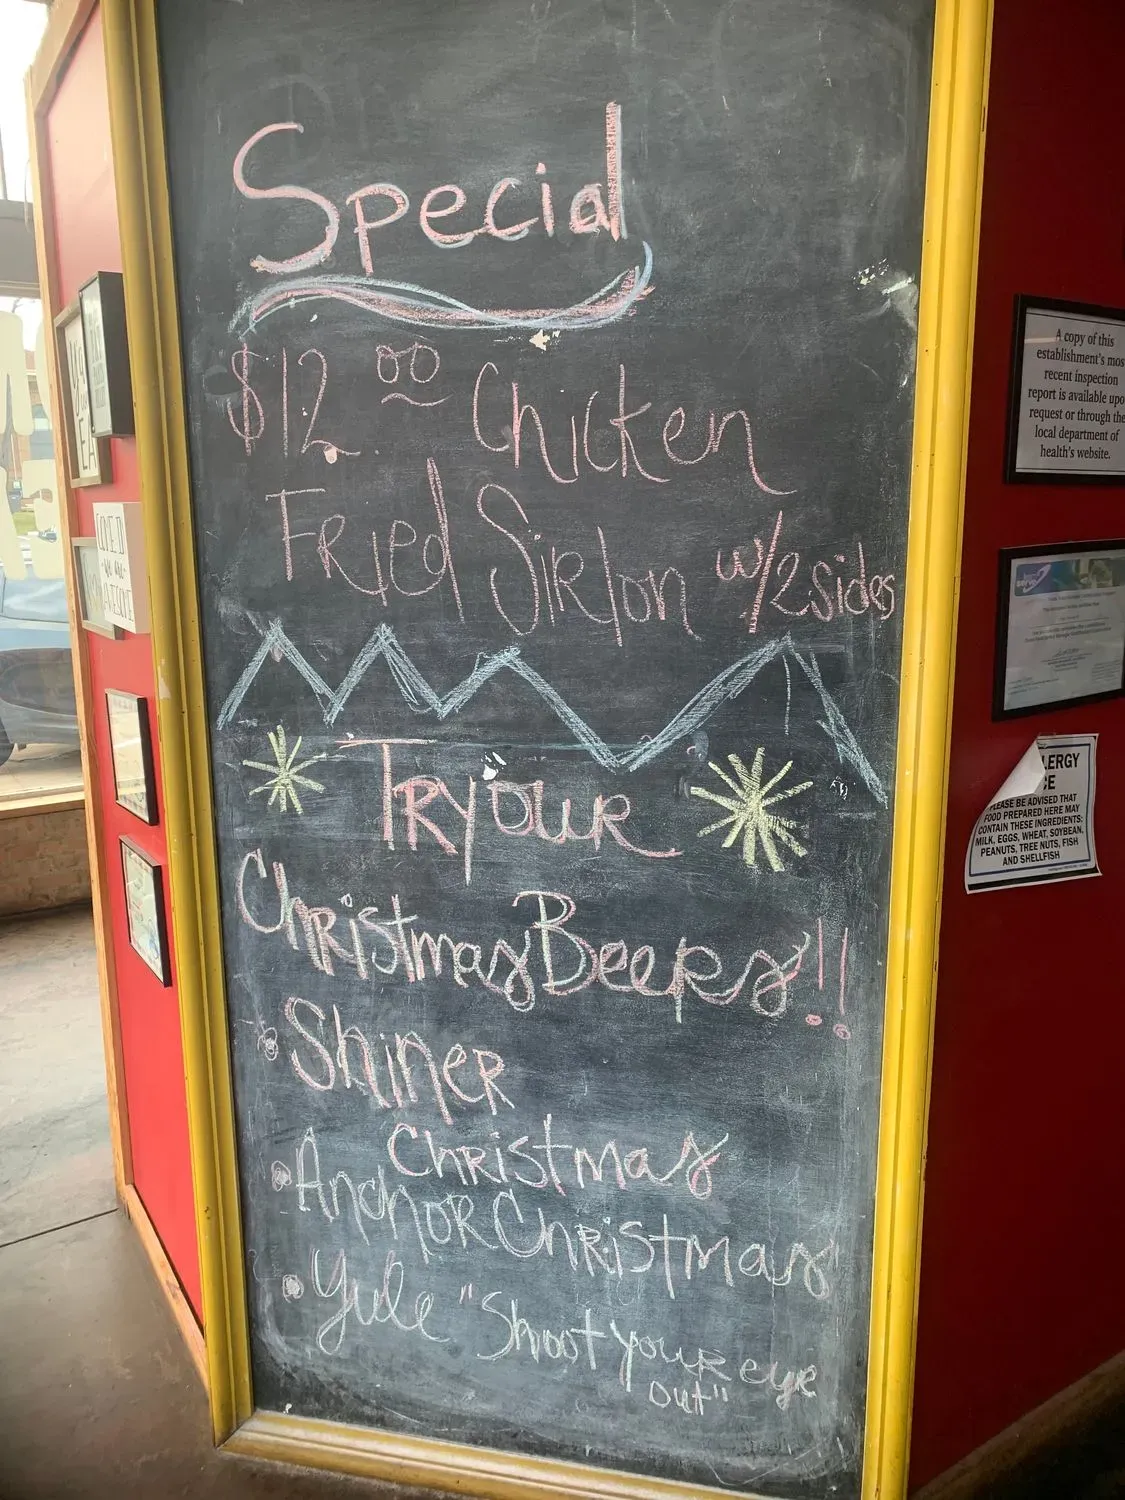 Special
$12.00 Chicken
Fried Sirlon w/2 sides
Try our
Christmas Beers!!
Shiner
Christmas
Anchor Christmas
Yule "Shoot your eye
out"
A copy of this
establishment's most
recent inspection
report is available upo
request or through the
local department of
health's website.
LERGY
CE
PLEASE BE ADVISED THAT
FOOD PREPARED HERE MAY
CONTAIN THESE INGREDIENTS:
MILK, EGGS, WHEAT, SOYBEAN,
PEANUTS, TREE NUTS, FISH
AND SHELLFISH